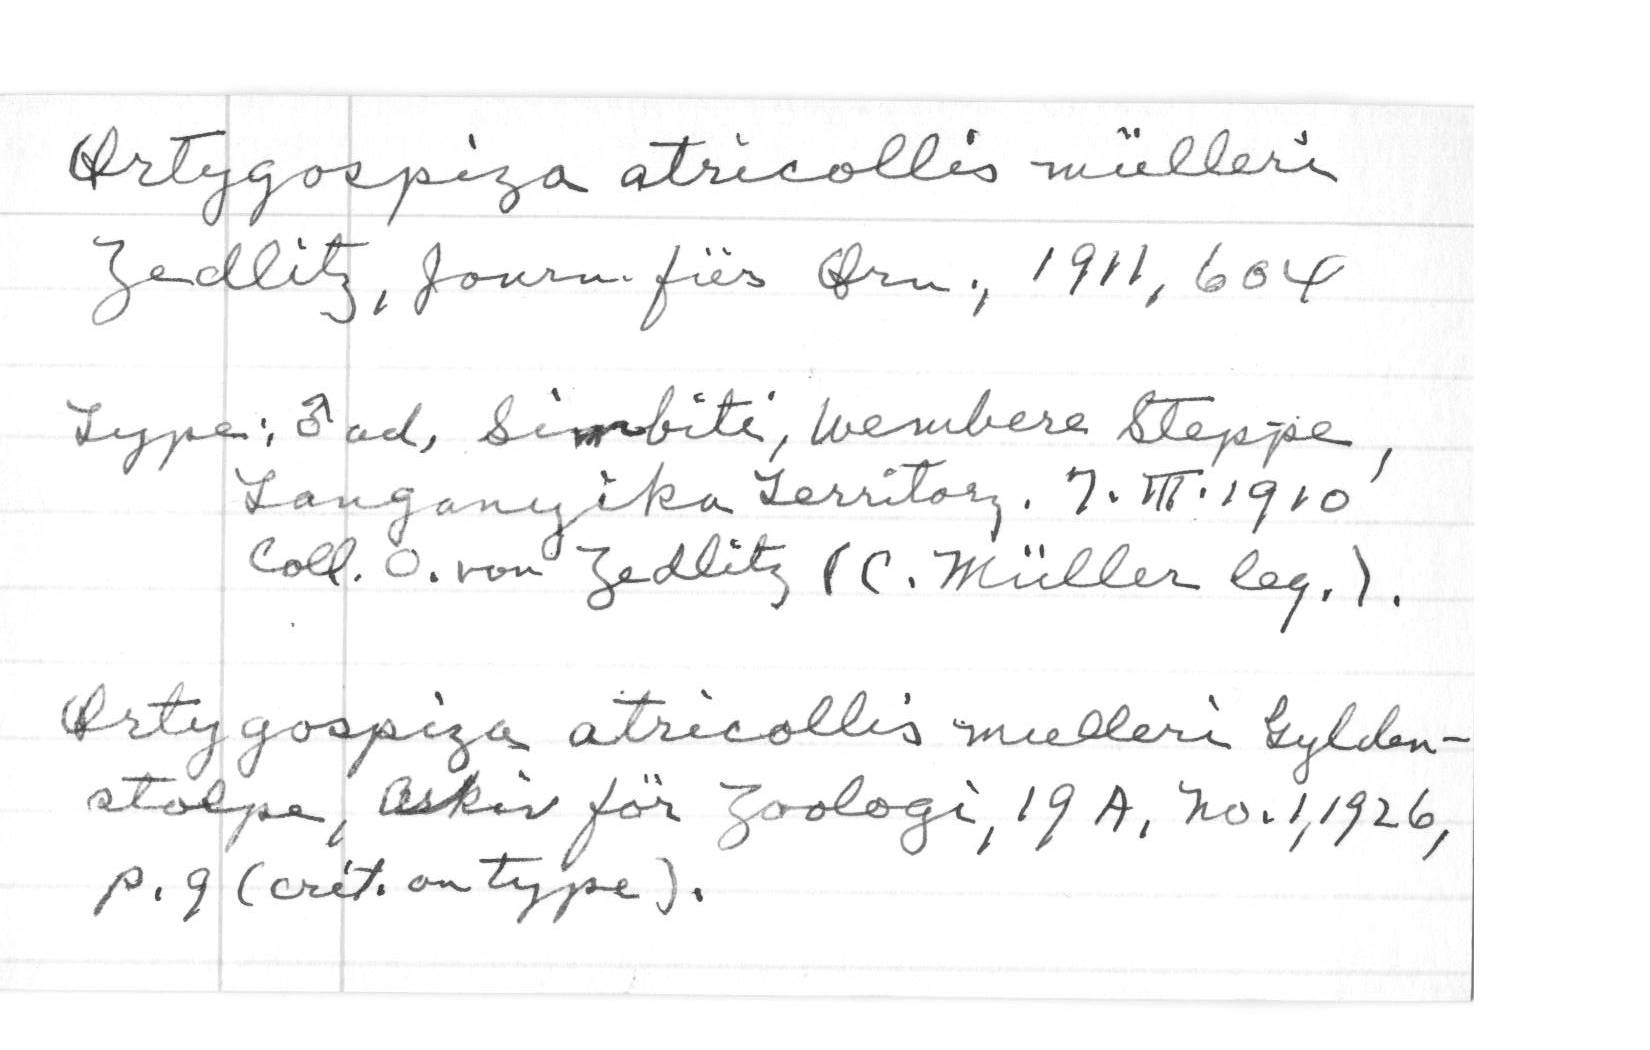 Ortygospiza atricollis mülleri
Zedlitz, Journ. für Orn., 1911, 604
Type: ♂ ad, Simbiti, Wembere Steppe,
Tanganyika Territory. 7. III. 1910
Coll. O. von Zedlitz (C. Müller leg.).
Ortygospiza atricollis muelleri Gylden-
stolpe, Arkiv för Zoologi, 19 A, No. 1, 1926,
p. 9 (crit. on type).